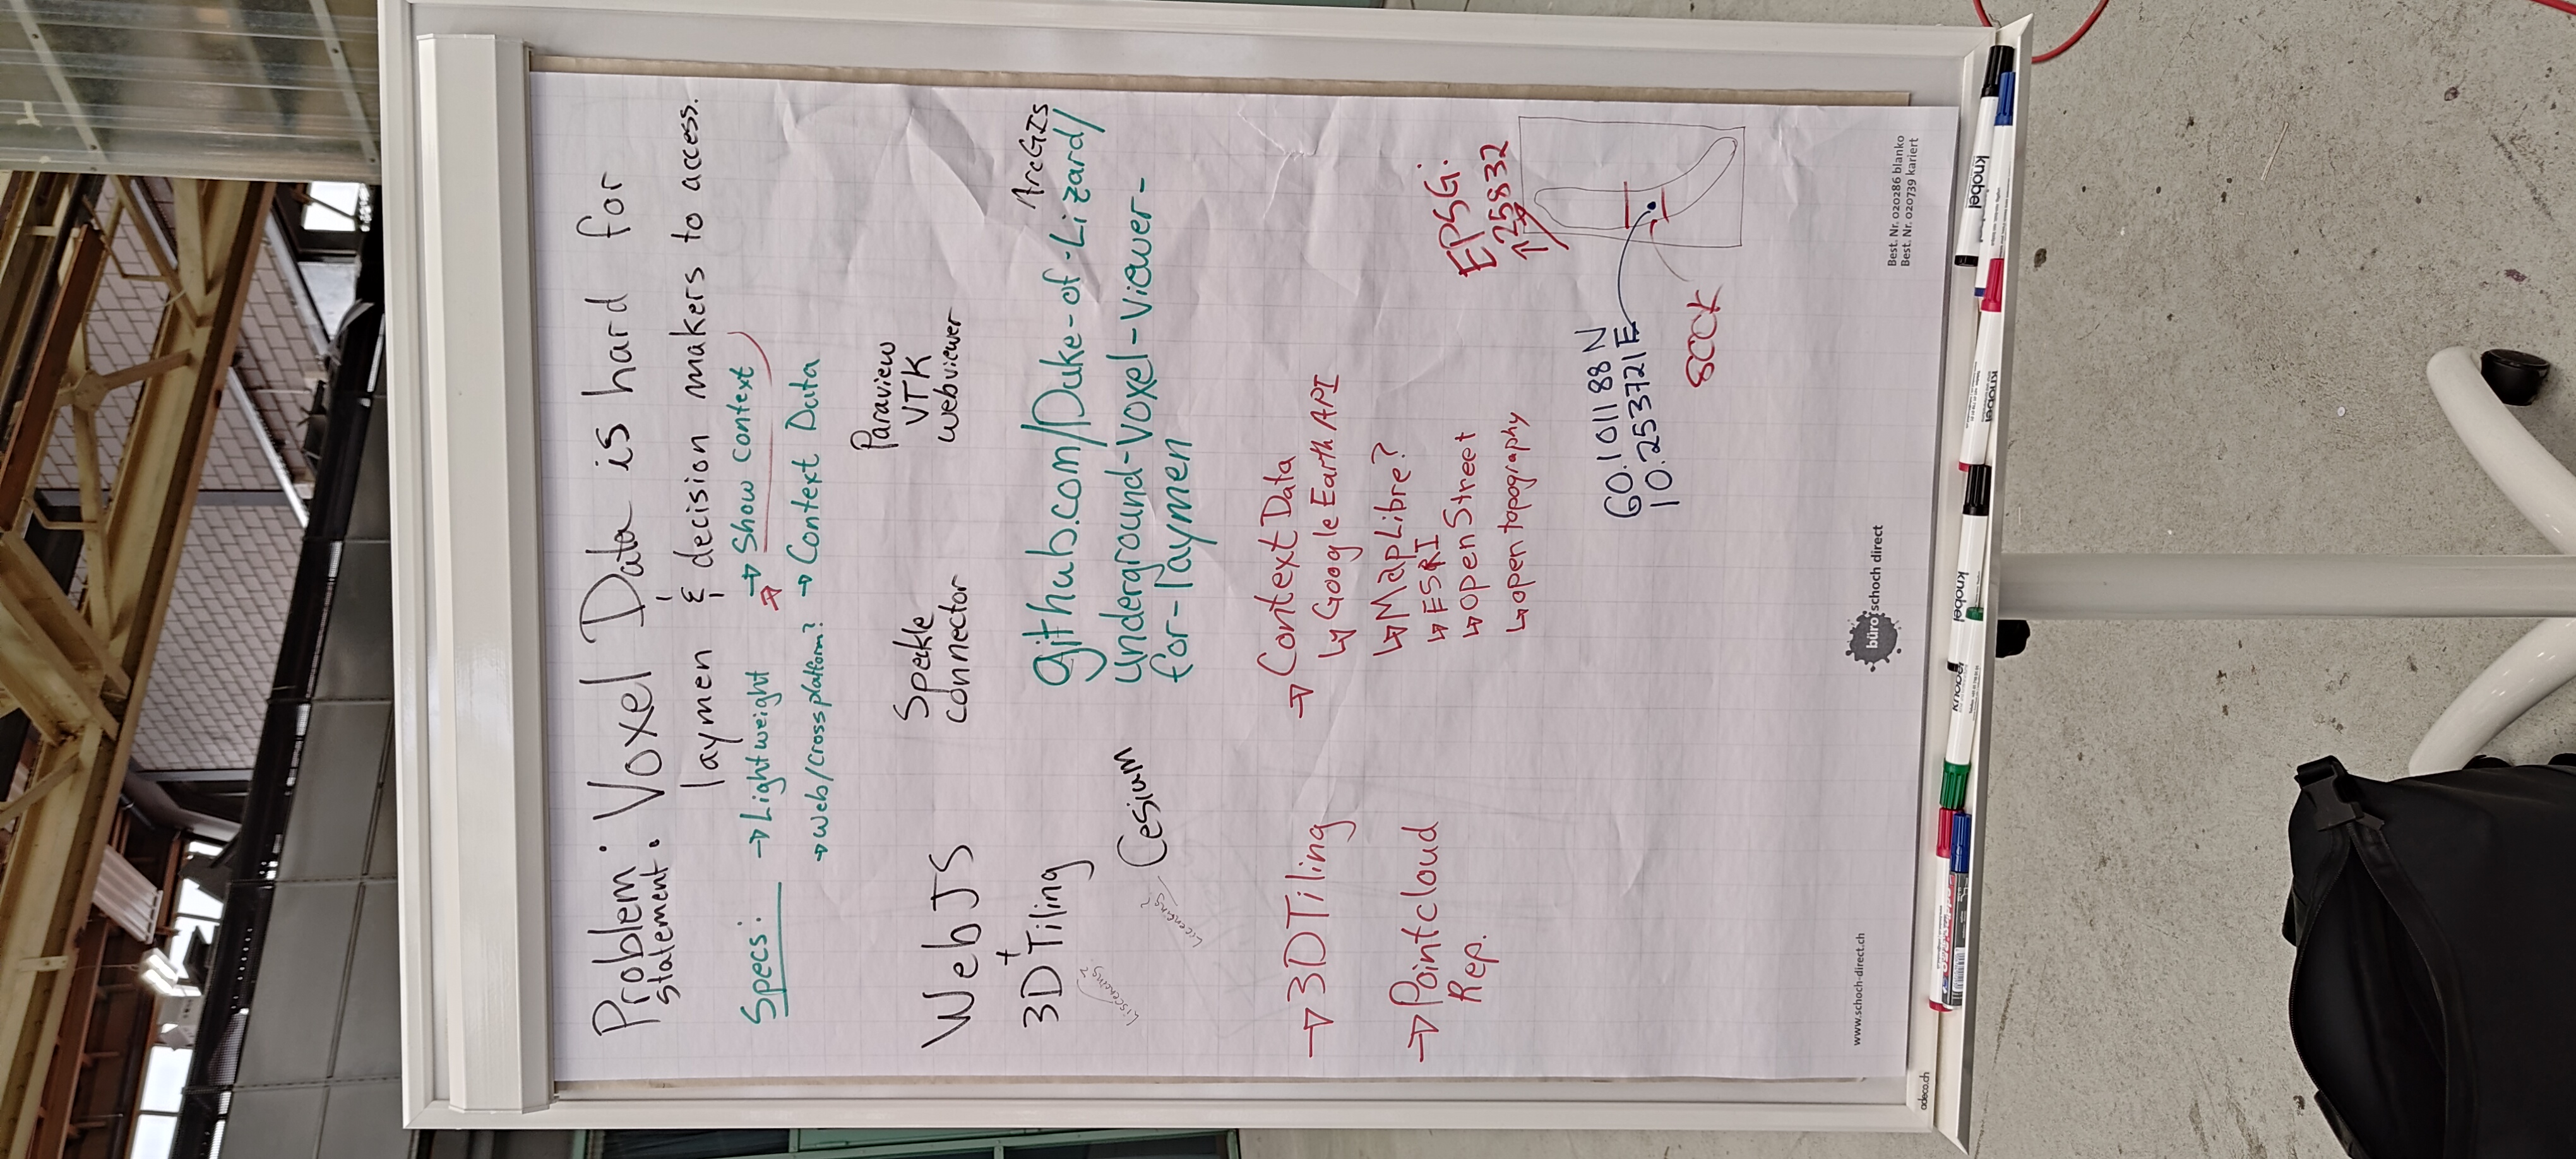 Problem statement: Voxel Data is hard for
laymen & decision makers to access.
Specs:
→ Lightweight
→ Show context
→ Web/Crossplatform?
→ Context Data
WebJS
+
3D Tiling
Liscencing?
Speckle
connector
Paraview
VTK
webviewer
ArcGIs
github.com/Duke-of-Lizard/
underground-voxel-viewer-
for-laymen
Cesium
Licencing?
→ 3D Tiling
→ Pointcloud
Rep.
→ Context Data
↳ Google Earth API
↳ MapLibre?
↳ ESRI
↳ open Street
↳ open topography
EPSG:
25832
60.101188 N
10.253721 E
SOCK
www.schoch-direct.ch
büro schoch direct
Best. Nr. 020286 blanko
Best. Nr. 020739 kariert
adeco.ch
knobel
knobel
knobel